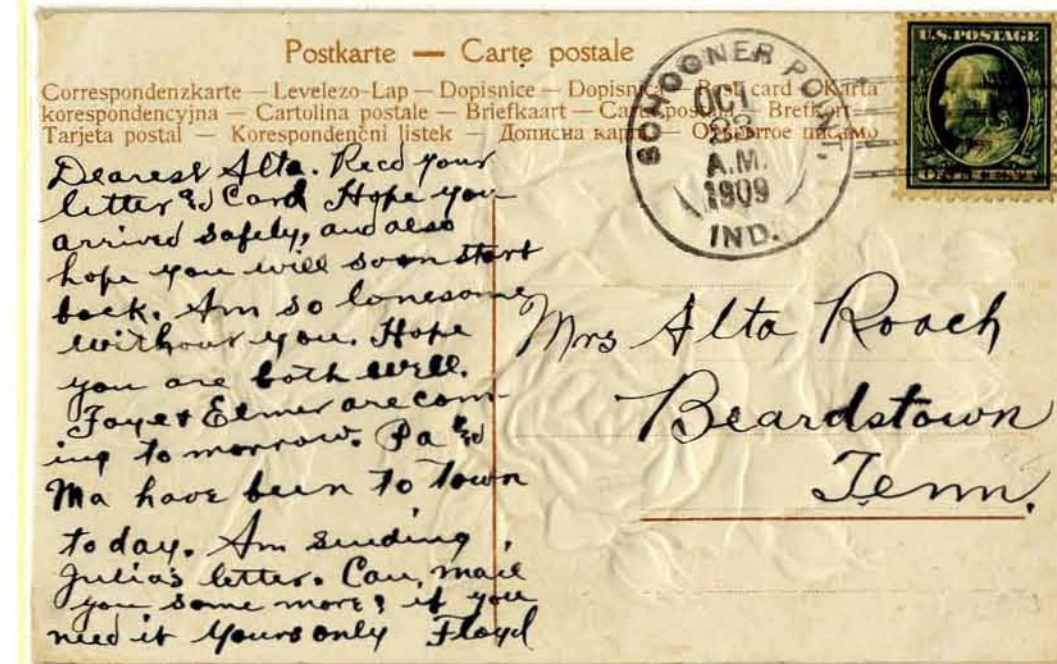 Postkarte — Carte postale
Correspondenzkarte — Levelezo-Lap — Dopisnice — Dopisnica — Post card — Karta
korespondencyjna — Cartolina postale — Briefkaart — Carta postale — Brefkort
Tarjeta postal — Korespondenční listek — Дописна карта — Открытое письмо
SCHOONER POINT,
OCT
A.M.
1909
IND.
U.S. POSTAGE
Dearest Alta. Recd your
letter & Card Hope you
arrived safely, and also
hope you will soon start
back. Am so lonesome
without you. Hope
you are both well.
Faye & Elmer are com-
ing to morrow. Pa &
Ma have been to town
today. Am sending
Julia's letter. Can, mail
you some more, if you
need it Yours only Floyd
Mrs Alta Roach
Beardstown
Tenn.